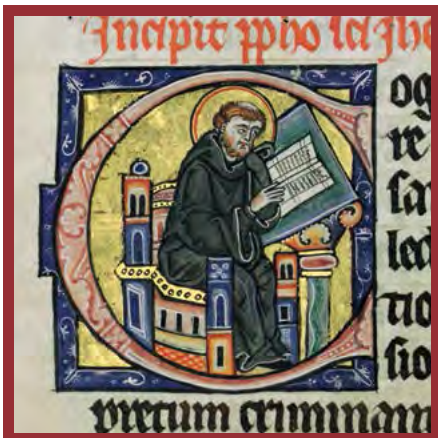 Incipit ppho sci Jhe
Cog
re
sa
led
tio
sio
pretum criminant